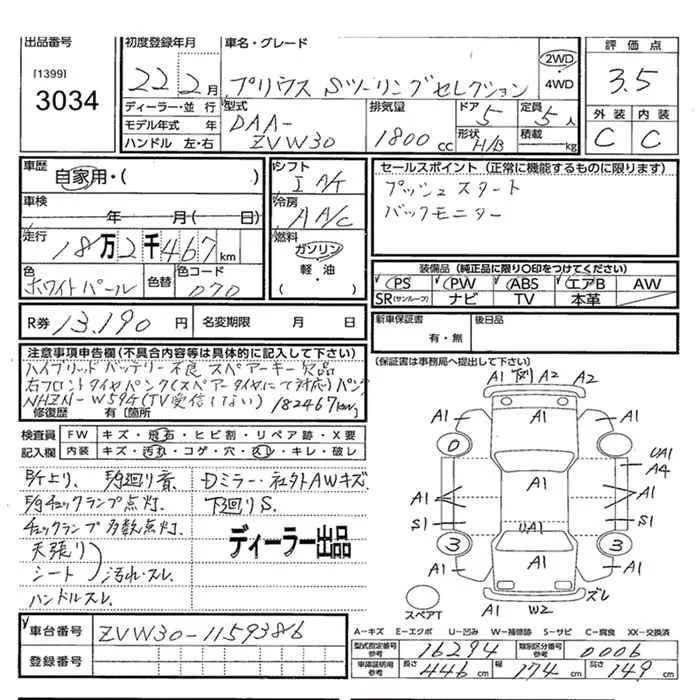 出品番号
[1399]
3034
初度登録年月
22年2月
車名・グレード
プリウス Sツーリングセレクション
2WD
4WD
評価点
3.5
外装 内装
C C
ディーラー・並行
モデル年式 年
ハンドル 左・右
型式
DAA-
ZVW30
排気量
1800cc
ドア
5
形状
H/B
定員
5人
積載
kg
車歴
自家用・( )
車検
年 月( 日)
走行
18万2千467km
色
ホワイトパール
色替
色コード
070
シフト
I A/T
冷房
AA/C
燃料
ガソリン
軽・油
( )
セールスポイント (正常に機能するものに限ります)
プッシュスタート
バックモニター
装備品 (純正品に限り○印をつけてください)
PS PW ABS エアB AW
SR(サンルーフ) ナビ TV 本革
R券 13,190円
名変期限 月 日
新車保証書
有・無
後日品
(保証書は事務局へ提出して下さい)
注意事項申告欄(不具合内容等は具体的に記入して下さい)
ハイブリッドバッテリー不良 スペアーキー欠品
右フロントタイヤパンク(スペアータイヤにて対応)パンク
NHZN-W59G(TV受信しない) 182467km
修復歴 有〔箇所
検査員 FW キズ・飛石・ヒビ割・リペア跡・X要
記入欄 内装 キズ・汚れ・コゲ・穴・スレ・キレ・破レ
Dミラー・社外AWキズ
下廻りS.
チェックランプ多数点灯.
天張り
シート 汚れ・スレ.
ハンドルスレ.
ディーラー出品
A1 A2 A2
A1 A1 A1
UA1
A4
A1 A1 A1
S1 S1
3 3
UA1
A1
A1 A1
スペアT
A1 W2 ズレ
車台番号 ZVW30-1159386
登録番号
A-キズ E-エクボ U-凹み W-補修跡 S-サビ C-腐食 XX-交換済
型式指定番号 参考 16294 類別区分番号 参考 0006
申請証明用 参考 長さ 446cm 幅 174cm 高さ 149cm